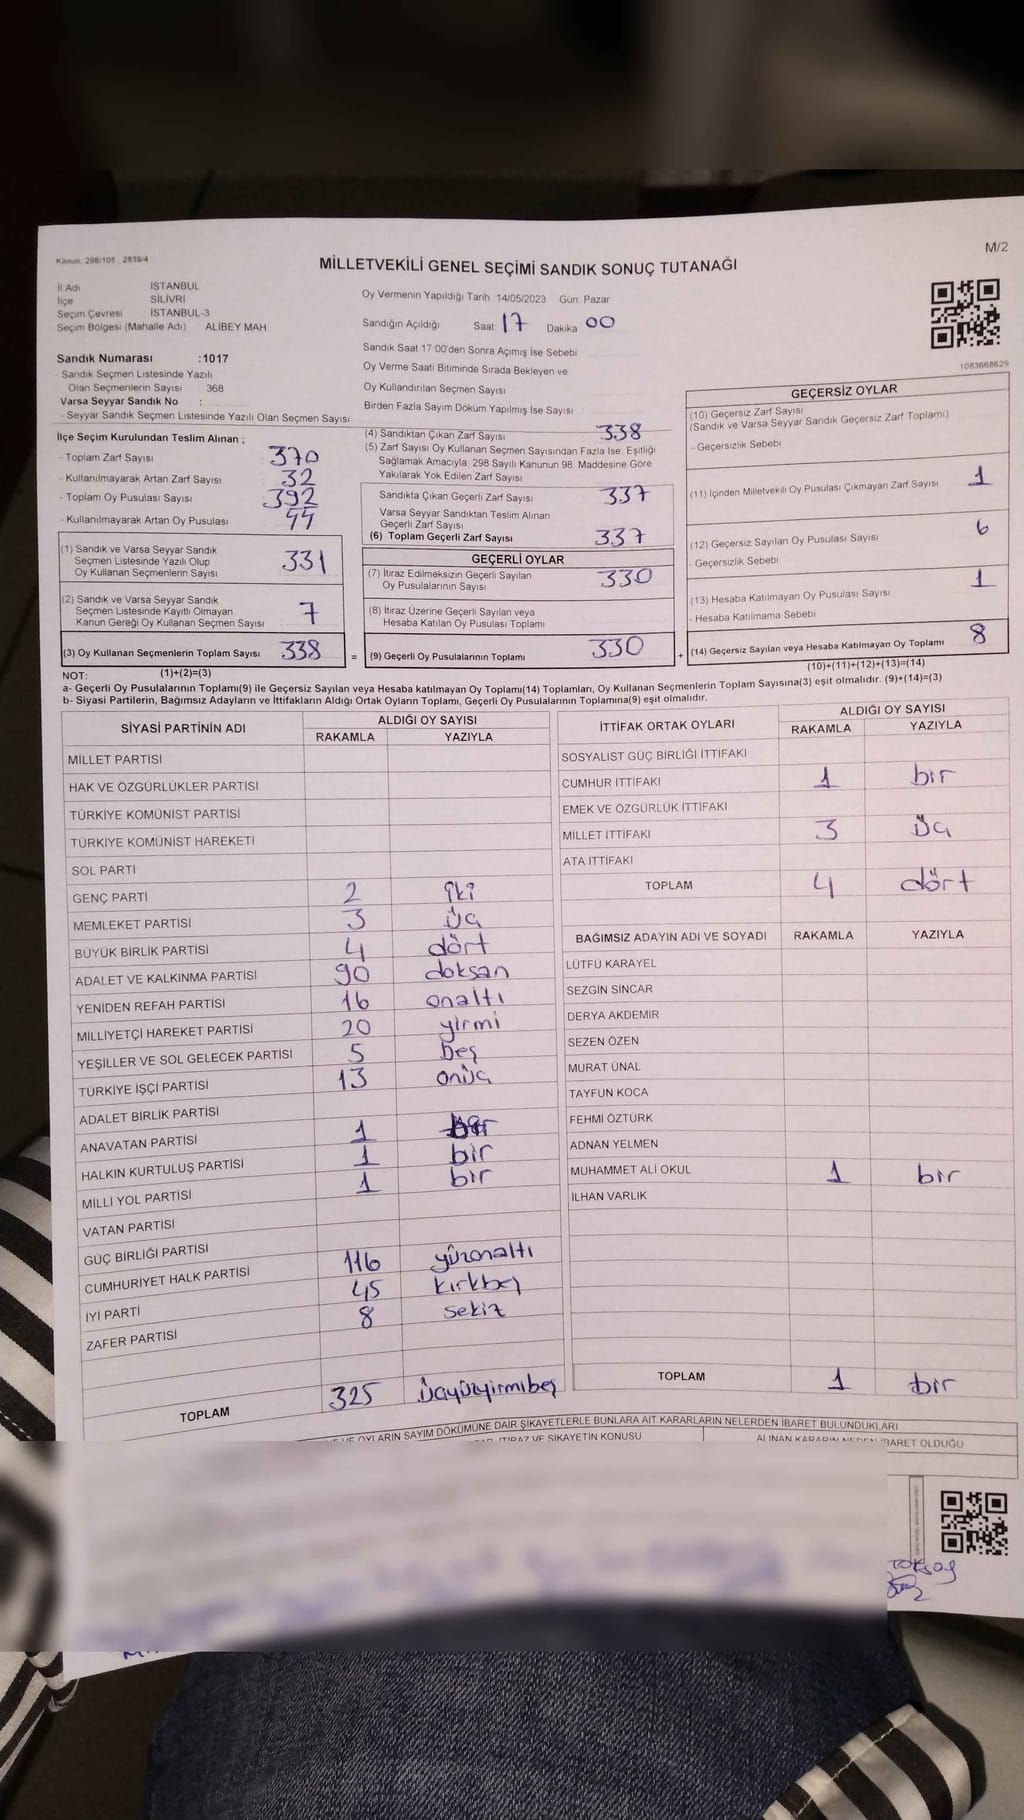 Kanun: 298/105 2839/4
M/2
MİLLETVEKİLİ GENEL SEÇİMİ SANDIK SONUÇ TUTANAĞI
İl Adı İSTANBUL
İlçe SİLİVRİ
Seçim Çevresi İSTANBUL-3
Seçim Bölgesi (Mahalle Adı) ALİBEY MAH
Sandık Numarası :1017
- Sandık Seçmen Listesinde Yazılı
Olan Seçmenlerin Sayısı 368
Varsa Seyyar Sandık No :
- Seyyar Sandık Seçmen Listesinde Yazılı Olan Seçmen Sayısı
İlçe Seçim Kurulundan Teslim Alınan ;
- Toplam Zarf Sayısı 370
- Kullanılmayarak Artan Zarf Sayısı 32
- Toplam Oy Pusulası Sayısı 392
- Kullanılmayarak Artan Oy Pusulası 44
(1) Sandık ve Varsa Seyyar Sandık
Seçmen Listesinde Yazılı Olup
Oy Kullanan Seçmenlerin Sayısı 331
(2) Sandık ve Varsa Seyyar Sandık
Seçmen Listesinde Kayıtlı Olmayan
Kanun Gereği Oy Kullanan Seçmen Sayısı 7
(3) Oy Kullanan Seçmenlerin Toplam Sayısı 338
(1)+(2)=(3)
Oy Vermenin Yapıldığı Tarih 14/05/2023 Gün: Pazar
Sandığın Açıldığı Saat 17 Dakika 00
Sandık Saat 17:00'den Sonra Açımış İse Sebebi
Oy Verme Saati Bitiminde Sırada Bekleyen ve
Oy Kullandırılan Seçmen Sayısı
Birden Fazla Sayım Döküm Yapılmış İse Sayısı
(4) Sandıktan Çıkan Zarf Sayısı 338
(5) Zarf Sayısı Oy Kullanan Seçmen Sayısından Fazla İse, Eşitliği
Sağlamak Amacıyla, 298 Sayılı Kanunun 98. Maddesine Göre
Yakılarak Yok Edilen Zarf Sayısı
Sandıkta Çıkan Geçerli Zarf Sayısı 337
Varsa Seyyar Sandıktan Teslim Alınan
Geçerli Zarf Sayısı
(6) Toplam Geçerli Zarf Sayısı 337
GEÇERLİ OYLAR
(7) İtiraz Edilmeksizin Geçerli Sayılan
Oy Pusulalarının Sayısı 330
(8) İtiraz Üzerine Geçerli Sayılan veya
Hesaba Katılan Oy Pusulası Toplamı
= (9) Geçerli Oy Pusulalarının Toplamı 330 +
1083668629
GEÇERSİZ OYLAR
(10) Geçersiz Zarf Sayısı
(Sandık ve Varsa Seyyar Sandık Geçersiz Zarf Toplamı)
- Geçersizlik Sebebi
(11) İçinden Milletvekili Oy Pusulası Çıkmayan Zarf Sayısı 1
(12) Geçersiz Sayılan Oy Pusulası Sayısı 6
- Geçersizlik Sebebi
(13) Hesaba Katılmayan Oy Pusulası Sayısı 1
- Hesaba Katılmama Sebebi
(14) Geçersiz Sayılan veya Hesaba Katılmayan Oy Toplamı 8
(10)+(11)+(12)+(13)=(14)
NOT:
a- Geçerli Oy Pusulalarının Toplamı(9) ile Geçersiz Sayılan veya Hesaba katılmayan Oy Toplamı(14) Toplamları, Oy Kullanan Seçmenlerin Toplam Sayısına(3) eşit olmalıdır. (9)+(14)=(3)
b- Siyasi Partilerin, Bağımsız Adayların ve İttifakların Aldığı Ortak Oyların Toplamı, Geçerli Oy Pusulalarının Toplamına(9) eşit olmalıdır.
SİYASİ PARTİNİN ADI ALDIĞI OY SAYISI
RAKAMLA YAZIYLA
MİLLET PARTİSİ
HAK VE ÖZGÜRLÜKLER PARTİSİ
TÜRKİYE KOMÜNİST PARTİSİ
TÜRKİYE KOMÜNİST HAREKETİ
SOL PARTİ
GENÇ PARTİ 2 iki
MEMLEKET PARTİSİ 3 üç
BÜYÜK BİRLİK PARTİSİ 4 dört
ADALET VE KALKINMA PARTİSİ 90 doksan
YENİDEN REFAH PARTİSİ 16 onaltı
MİLLİYETÇİ HAREKET PARTİSİ 20 yirmi
YEŞİLLER VE SOL GELECEK PARTİSİ 5 beş
TÜRKİYE İŞÇİ PARTİSİ 13 onüç
ADALET BİRLİK PARTİSİ
ANAVATAN PARTİSİ 1
HALKIN KURTULUŞ PARTİSİ 1 bir
MİLLİ YOL PARTİSİ 1 bir
VATAN PARTİSİ
GÜÇ BİRLİĞİ PARTİSİ
CUMHURİYET HALK PARTİSİ 116 yüzonaltı
İYİ PARTİ 45 kırkbeş
ZAFER PARTİSİ 8 sekiz
TOPLAM 325 üçyüzyirmibeş
İTTİFAK ORTAK OYLARI ALDIĞI OY SAYISI
RAKAMLA YAZIYLA
SOSYALİST GÜÇ BİRLİĞİ İTTİFAKI
CUMHUR İTTİFAKI 1 bir
EMEK VE ÖZGÜRLÜK İTTİFAKI
MİLLET İTTİFAKI 3 üç
ATA İTTİFAKI
TOPLAM 4 dört
BAĞIMSIZ ADAYIN ADI VE SOYADI RAKAMLA YAZIYLA
LÜTFÜ KARAYEL
SEZGİN SİNCAR
DERYA AKDEMİR
SEZEN ÖZEN
MURAT ÜNAL
TAYFUN KOCA
FEHMİ ÖZTÜRK
ADNAN YELMEN
MUHAMMET ALİ OKUL 1 bir
İLHAN VARLIK
TOPLAM 1 bir
VE OYLARIN SAYIM DÖKÜMÜNE DAİR ŞİKAYETLERLE BUNLARA AİT KARARLARIN NELERDEN İBARET BULUNDUKLARI
İTİRAZ VE ŞİKAYETİN KONUSU ALINAN KARARIN NEDEN İBARET OLDUĞU